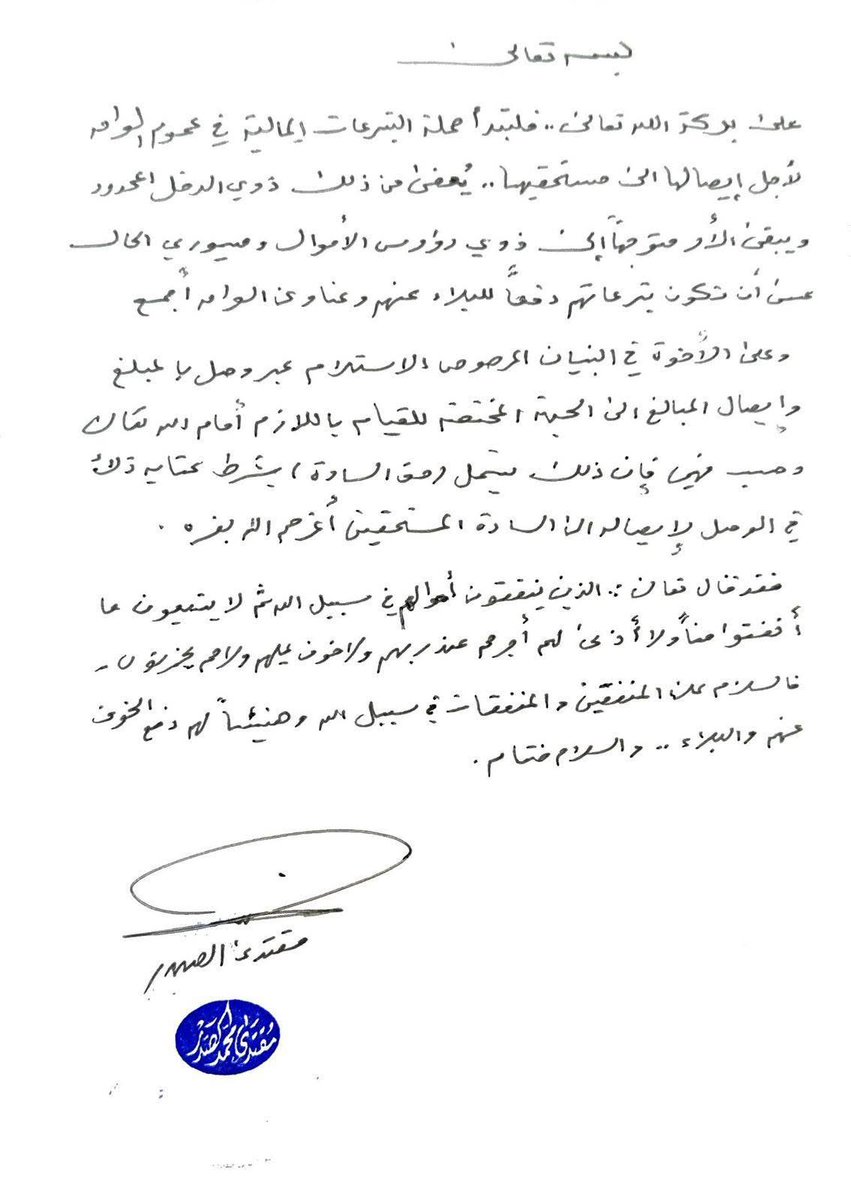 بسمه تعالى
على بركة الله تعالى.. فلتبدأ حملة التبرعات المالية في عموم العراق
لأجل إيصالها الى مستحقيها.. يُعفى من ذلك ذوي الدخل المحدود
ويبقى الأمر متوجهاً إلى ذوي رؤوس الأموال وميسوري الحال
عسى أن تكون تبرعاتهم دفعاً للبلاء عنهم وعنا وعن العراق أجمع
وعلى الأخوة في البنيان المرصوص الاستلام عبر وصل بالمبلغ
وإيصال المبالغ الى الجهة المختصة للقيام باللازم أمام الله تعالى
وحسب فهمي فإن ذلك يشمل (حق السادة) بشرط كتابة ذلك
في الوصل لإيصاله الى السادة المستحقين أعزهم الله بعزه.
فقد قال تعالى: الذين ينفقون أموالهم في سبيل الله ثم لا يتبعون ما
أنفقوا مناً ولا أذى لهم أجرهم عند ربهم ولا خوف عليهم ولا هم يحزنون.
فالسلام على المنفقين والمنفقات في سبيل الله وهنيئاً لهم دفع الخوف
عنهم والبلاء.. والسلام ختام.
مقتدى الصدر
مقتدى محمد الصدر